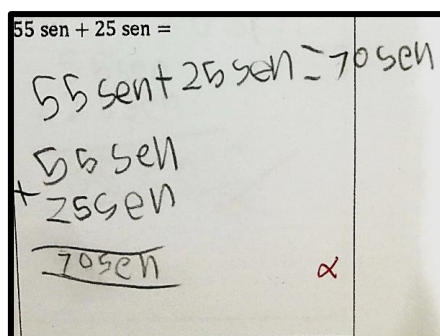 55 sen + 25 sen =
55 sen + 25 sen = 70 sen
55 sen
+ 25 sen
70 sen